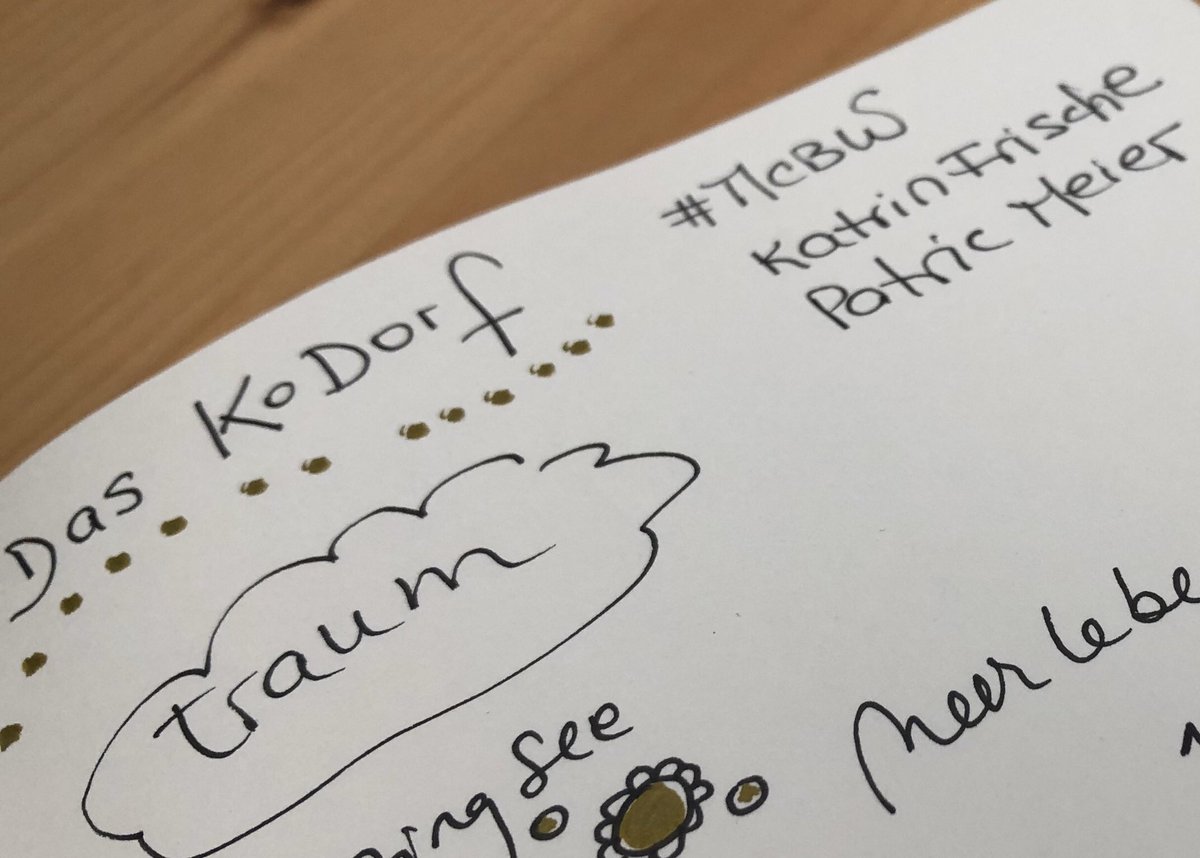 #TMCBW
Katrin Frische
Patric Meier
Das KoDorf
traum
See
Meer lebe